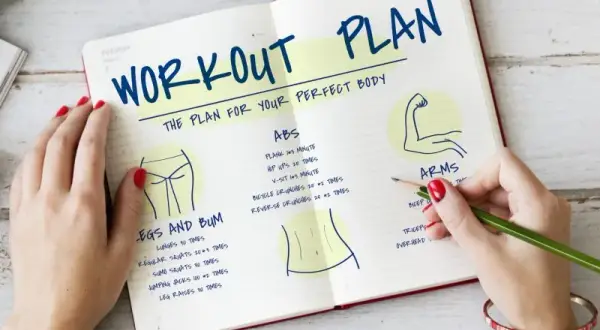 WORKOUT PLAN
THE PLAN FOR YOUR PERFECT BODY
ABS
PLANK
HIP UPS 20 TIMES
V-SIT MINUTE
BICYCLE CRUNCHES 20 TIMES
REVERSE CRUNCHES 20 TIMES
LEGS AND BUM
LUNGES TIMES
REGULAR SQUATS TIMES
SUMO SQUATS TIMES
JUMPING JACKS TIMES
LEG RAISES TIMES
ARMS
OVERHEAD